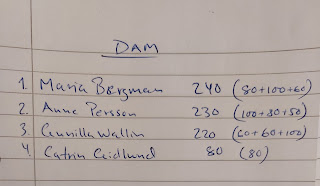 DAM
1. Maria Bergman 240 (80+100+60)
2. Anne Persson 230 (100+80+50)
3. Gunilla Wallin 220 (60+60+100)
4. Catrin Eidlund 80 (80)